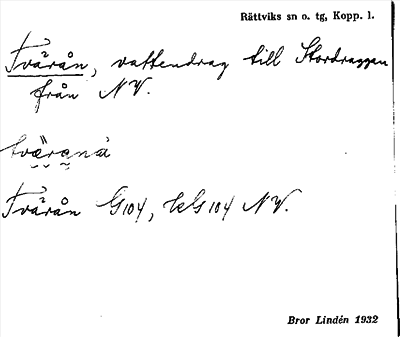 Rättviks sn o. tg, Kopp. l.
Tvärån, vattendrag till Stordraggan
från NV.
Tvärån G104, kG104 NV.
Bror Lindén 1932